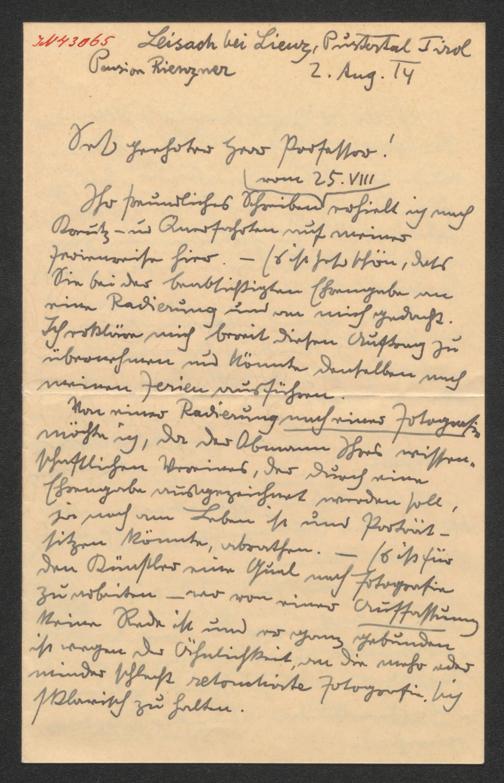 IN 43065
Leisach bei Lienz, Pustertal Tirol
Pension Rienzner 2. Aug. 14
Sehr geehrter Herr Professor!
vom 25. VIII
Ihr freundliches Schreiben erhielt ich nach
Kreutz- und Querfahrten auf meiner
Ferienreise hier. — Es ist sehr schön, dass
Sie bei der beabsichtigten Ehrengabe an
eine Radierung und an mich gedacht.
Ich erkläre mich bereit diesen Auftrag zu
übernehmen und könnte denselben nach
meinen Ferien ausführen.
Von einer Radierung nach einer Fotografie
möchte ich, da der Obmann Ihres wissen-
schaftlichen Vereines, der durch eine
Ehrengabe ausgezeichnet werden soll,
ja noch am Leben ist und Porträt-
sitzen könnte, abrathen. — Es ist für
den Künstler eine Qual nach Fotografie
zu arbeiten — wo von einer Auffassung
keine Rede ist und er ganz gebunden
ist wegen der Ähnlichkeit, an die mehr oder
minder schlecht retouchirte Fotografie, sich
sklavisch zu halten.